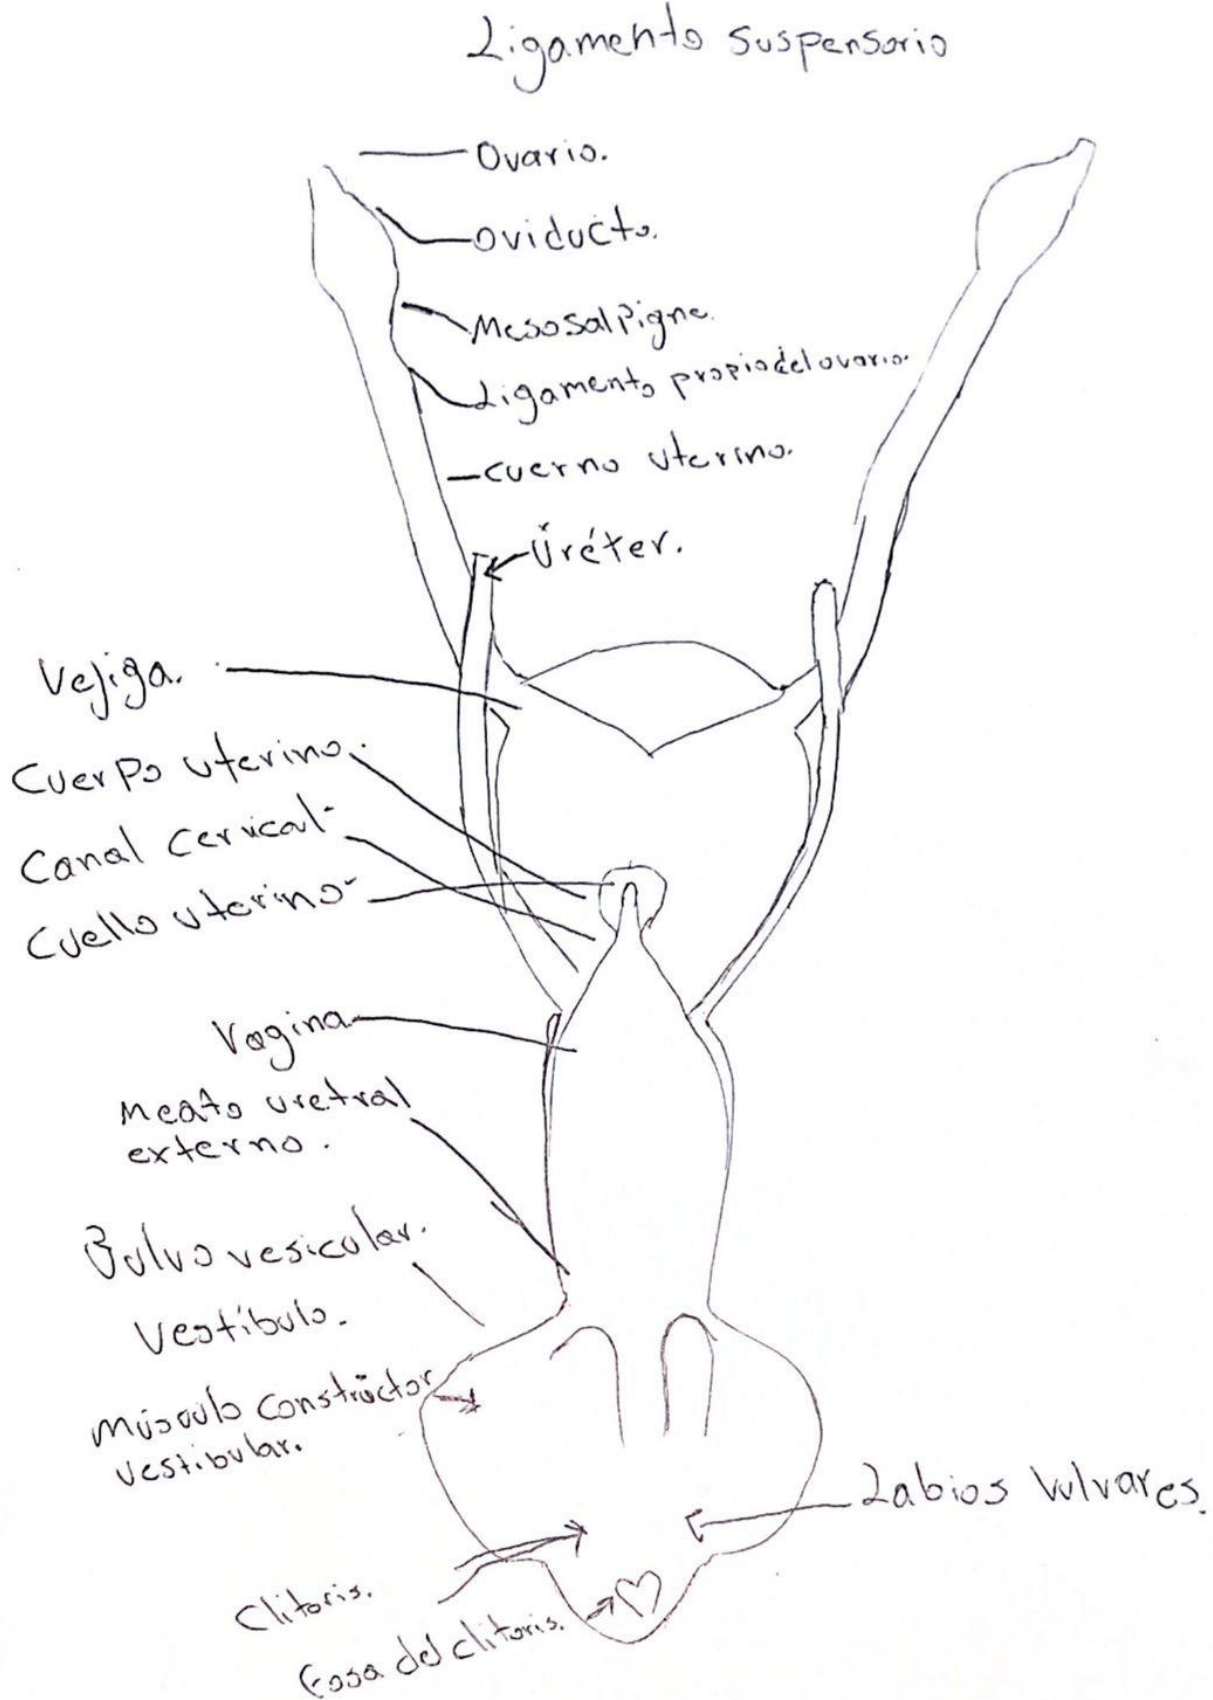 Ligamento suspensorio
Ovario.
Oviducto.
Mesosalpigne.
Ligamento propio del ovario.
cuerno uterino.
Uréter.
Vejiga.
Cuerpo uterino.
Canal cervical
Cuello uterino
Vagina
Meato uretral
externo.
Bulvo vesicular.
Vestíbulo.
Músculo constructor
vestibular.
Labios Vulvares.
Clitoris.
Fosa del clitoris.